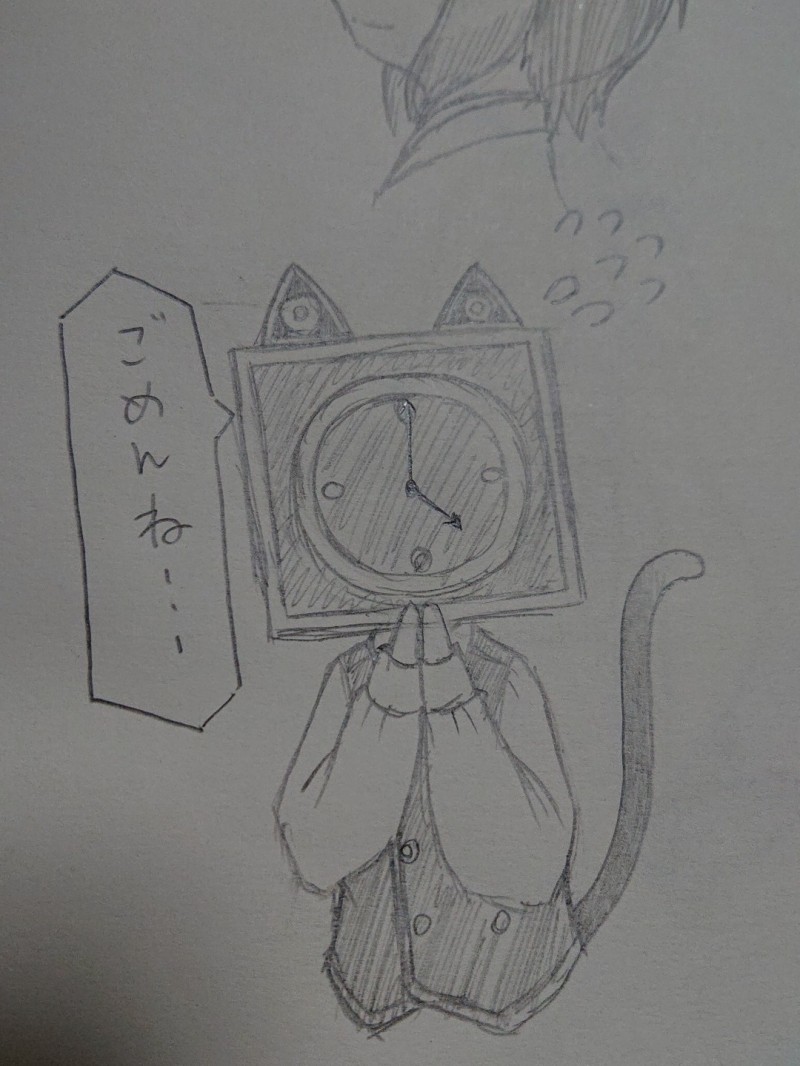 ごめんね…